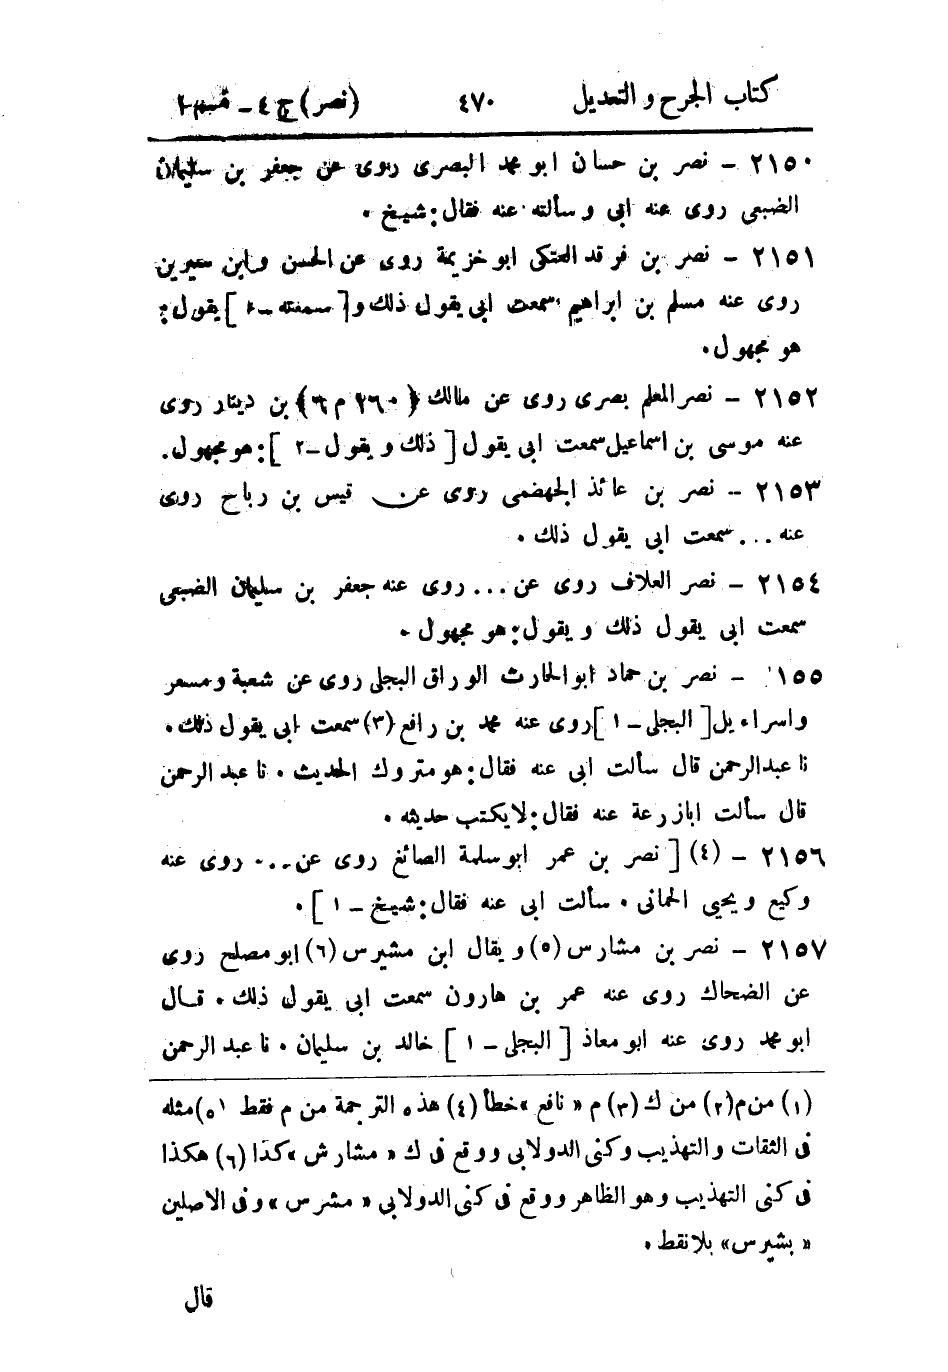 كتاب الجرح والتعديل ٤٧٠ (نصر) ج ٤ - قسم ١
٢١٥٠ - نصر بن حسان ابو محمد البصرى روى عن جعفر بن سليمان
الضبعى روى عنه ابى وسألته عنه فقال: شيخ ٠
٢١٥١ - نصر بن فرقد العتكى ابو خزيمة روى عن الحسن وابن سيرين
روى عنه مسلم بن ابراهيم سمعت ابى يقول ذلك و[سمعته - ١] يقول:
هو مجهول٠
٢١٥٢ - نصر المعلم بصرى روى عن مالك (٢٦٠ م ٦) بن دينار روى
عنه موسى بن اسماعيل سمعت ابى يقول [ذلك ويقول - ٢]: هو مجهول.
٢١٥٣ - نصر بن عائذ الجهضمى روى عن قيس بن رباح روى
عنه ... سمعت ابى يقول ذلك ٠
٢١٥٤ - نصر العلاف روى عن ... روى عنه جعفر بن سليمان الضبعى
سمعت ابى يقول ذلك ويقول: هو مجهول ٠
١٥٥ - نصر بن حماد ابو الحارث الوراق البجلى روى عن شعبة ومسعر
واسراءيل [البجلى - ١] روى عنه محمد بن رافع (٣) سمعت ابى يقول ذلك٠
نا عبد الرحمن قال سألت ابى عنه فقال: هو متروك الحديث ٠ نا عبد الرحمن
قال سألت ابا زرعة عنه فقال: لا يكتب حديثه ٠
٢١٥٦ - (٤) [نصر بن عمر ابو سلمة الصائغ روى عن ... روى عنه
وكيع ويحيى الحمانى ٠ سألت ابى عنه فقال: شيخ - ١] ٠
٢١٥٧ - نصر بن مشارس (٥) ويقال ابن مشيرس (٦) ابو مصلح روى
عن الضحاك روى عنه عمر بن هارون سمعت ابى يقول ذلك ٠ قال
ابو محمد روى عنه ابو معاذ [البجلى - ١] خالد بن سليمان ٠ نا عبد الرحمن
(١) من م (٢) من ك (٣) م «نافع» خطأ (٤) هذه الترجمة من م فقط (٥) مثله
فى الثقات والتهذيب وكنى الدولابى ووقع فى ك «مشارش» كذا (٦) هكذا
فى كنى التهذيب وهو الظاهر ووقع فى كنى الدولابي «مشرس» وفى الاصلين
«بشيرس» بلا نقط ٠
قال